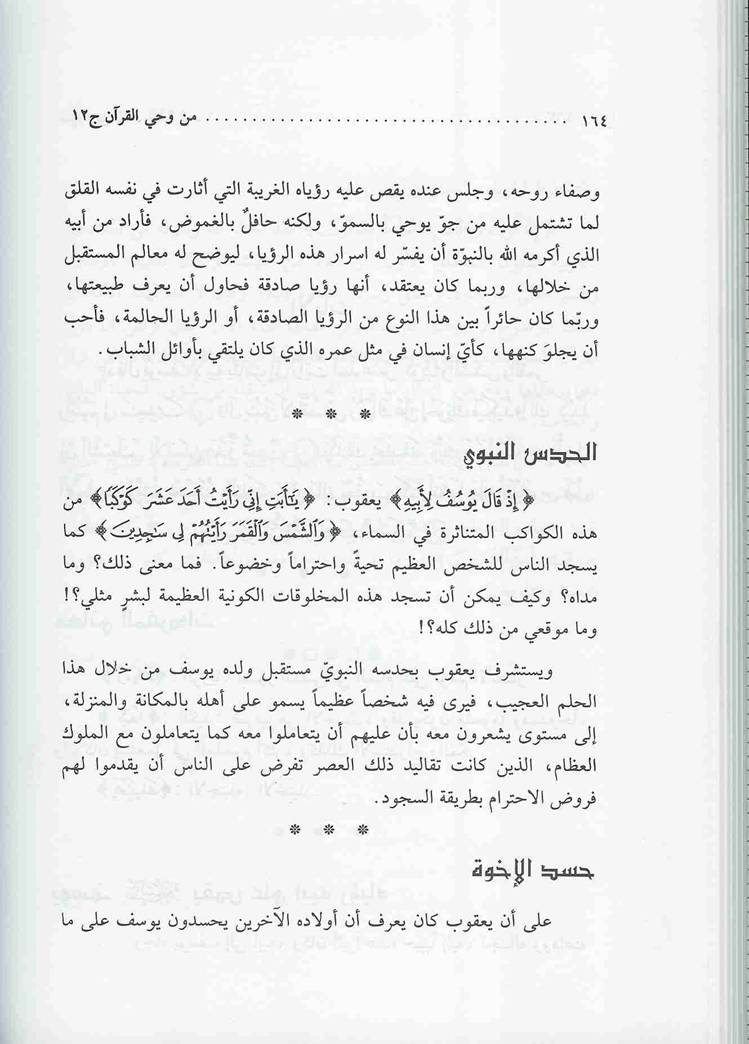 ١٦٤ ........................................ من وحي القرآن ج١٢
وصفاء روحه، وجلس عنده يقص عليه رؤياه الغريبة التي أثارت في نفسه القلق
لما تشتمل عليه من جوّ يوحي بالسموّ، ولكنه حافلٌ بالغموض، فأراد من أبيه
الذي أكرمه الله بالنبوّة أن يفسّر له اسرار هذه الرؤيا، ليوضح له معالم المستقبل
من خلالها، وربما كان يعتقد، أنها رؤيا صادقة فحاول أن يعرف طبيعتها،
وربّما كان حائراً بين هذا النوع من الرؤيا الصادقة، أو الرؤيا الحالمة، فأحب
أن يجلوَ كنهها، كأيّ إنسان في مثل عمره الذي كان يلتقي بأوائل الشباب.
* * *
الحدس النبوي
﴿إِذْ قَالَ يُوسُفُ لِأَبِيهِ﴾ يعقوب: ﴿يَٰٓأَبَتِ إِنِّي رَأَيْتُ أَحَدَ عَشَرَ كَوْكَبًا﴾ من
هذه الكواكب المتناثرة في السماء، ﴿وَالشَّمْسَ وَالْقَمَرَ رَأَيْتُهُمْ لِي سَاجِدِينَ﴾ كما
يسجد الناس للشخص العظيم تحيةً واحتراماً وخضوعاً. فما معنى ذلك؟ وما
مداه؟ وكيف يمكن أن تسجد هذه المخلوقات الكونية العظيمة لبشرٍ مثلي؟!
وما موقعي من ذلك كله؟!
ويستشرف يعقوب بحدسه النبويّ مستقبل ولده يوسف من خلال هذا
الحلم العجيب، فيرى فيه شخصاً عظيماً يسمو على أهله بالمكانة والمنزلة،
إلى مستوى يشعرون معه بأن عليهم أن يتعاملوا معه كما يتعاملون مع الملوك
العظام، الذين كانت تقاليد ذلك العصر تفرض على الناس أن يقدموا لهم
فروض الاحترام بطريقة السجود.
* * *
حسد الإخوة
على أن يعقوب كان يعرف أن أولاده الآخرين يحسدون يوسف على ما